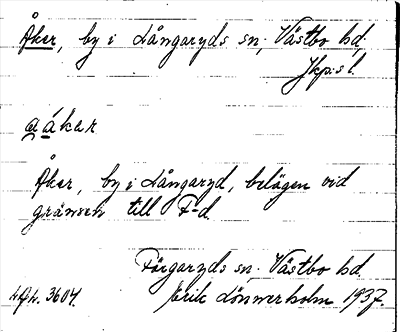 Åker, by i Långaryds sn, Västbo hd,
Jkp:s l.
a á k a r
Åker, by i Långaryd, belägen vid
gränsen till F-d.
Färgaryds sn. Västbo hd.
3604. Erik Lönnerholm 1937.